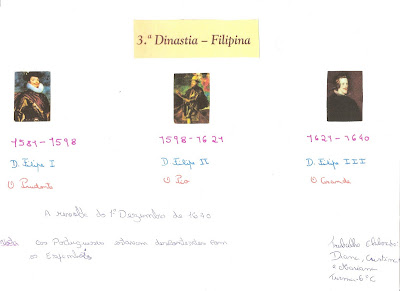 3.ª Dinastia – Filipina
1581-1598
1598-1621
1621-1640
D. Filipe I
D. Filipe II
D. Filipe III
O Prudente
O Pio
O Grande
A revolta do 1º Dezembro de 1640
Nota Os Portugueses estavam descontentes com
os Espanhóis
Trabalho elaborado:
Diana, Cristina
e Mariana
Turma 6ºC